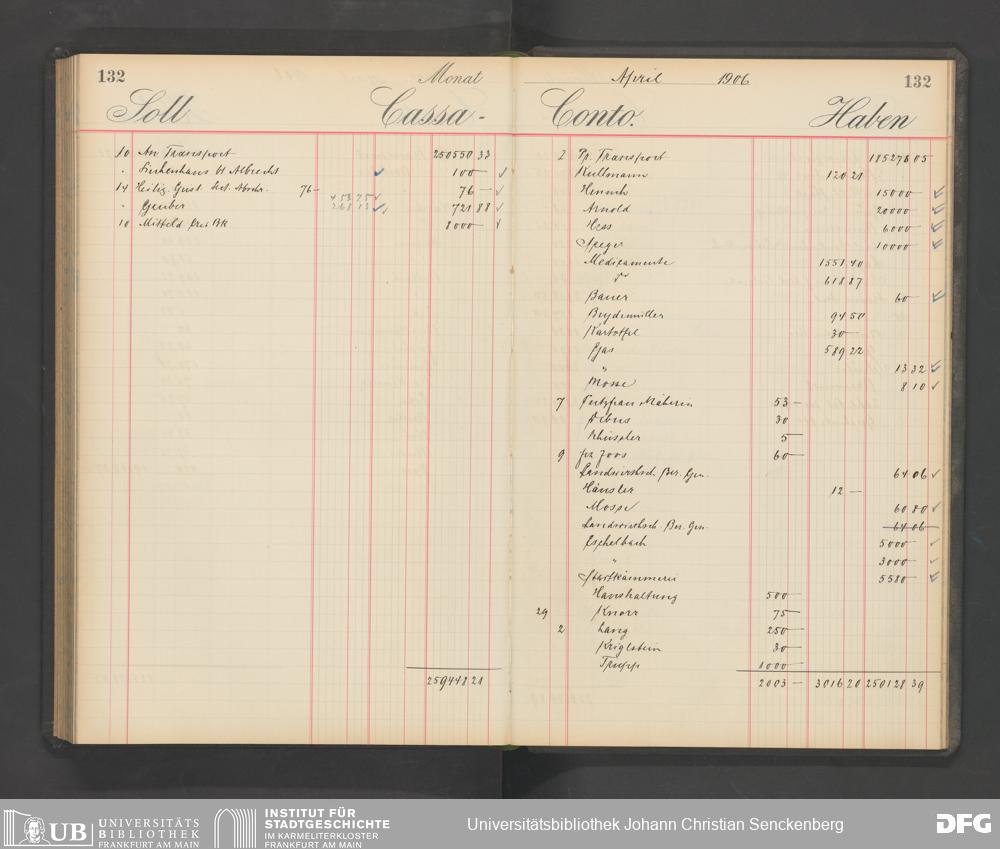 132 Monat
Soll Cassa-
10 An Transport 250550 33
" Siechenhaus 100 —
14 Heilig. Geist 76 — 76 —
453 75
" Gerber 268 13 721 88
10 Mitteld. 8000 —
259448 21
April 1906 132
Conto. Haben
2 Pr. Transport 185276 05
Kullmann 120 21
Hensch 15000 —
Arnold 20000 —
Hess 6000 —
Speyer 10000 —
Medikamente 1551 40
do 618 87
Bauer 60 —
94 50
Kartoffel 30 —
Gas 589 22
" 13 32
Mosse 8 10
7 Putzfrau Näherin 53 —
Dibus 30
5
9 Joos 60 —
Landwirthsch. Ber. Gen. 64 06
Häusler 12 —
Mosse 60 80
Landwirthsch. Ber. Gen. 64 06
Eschelbach 5000 —
" 3000 —
Stadtkämmerei 5580 —
Haushaltung 500 —
29 Knorr 75 —
2 Lang 250 —
Kriglstein 30 —
1000 —
2003 — 3016 20 250128 39
UB UNIVERSITÄTS
BIBLIOTHEK
FRANKFURT AM MAIN
INSTITUT FÜR
STADTGESCHICHTE
IM KARMELITERKLOSTER
FRANKFURT AM MAIN
Universitätsbibliothek Johann Christian Senckenberg
DFG